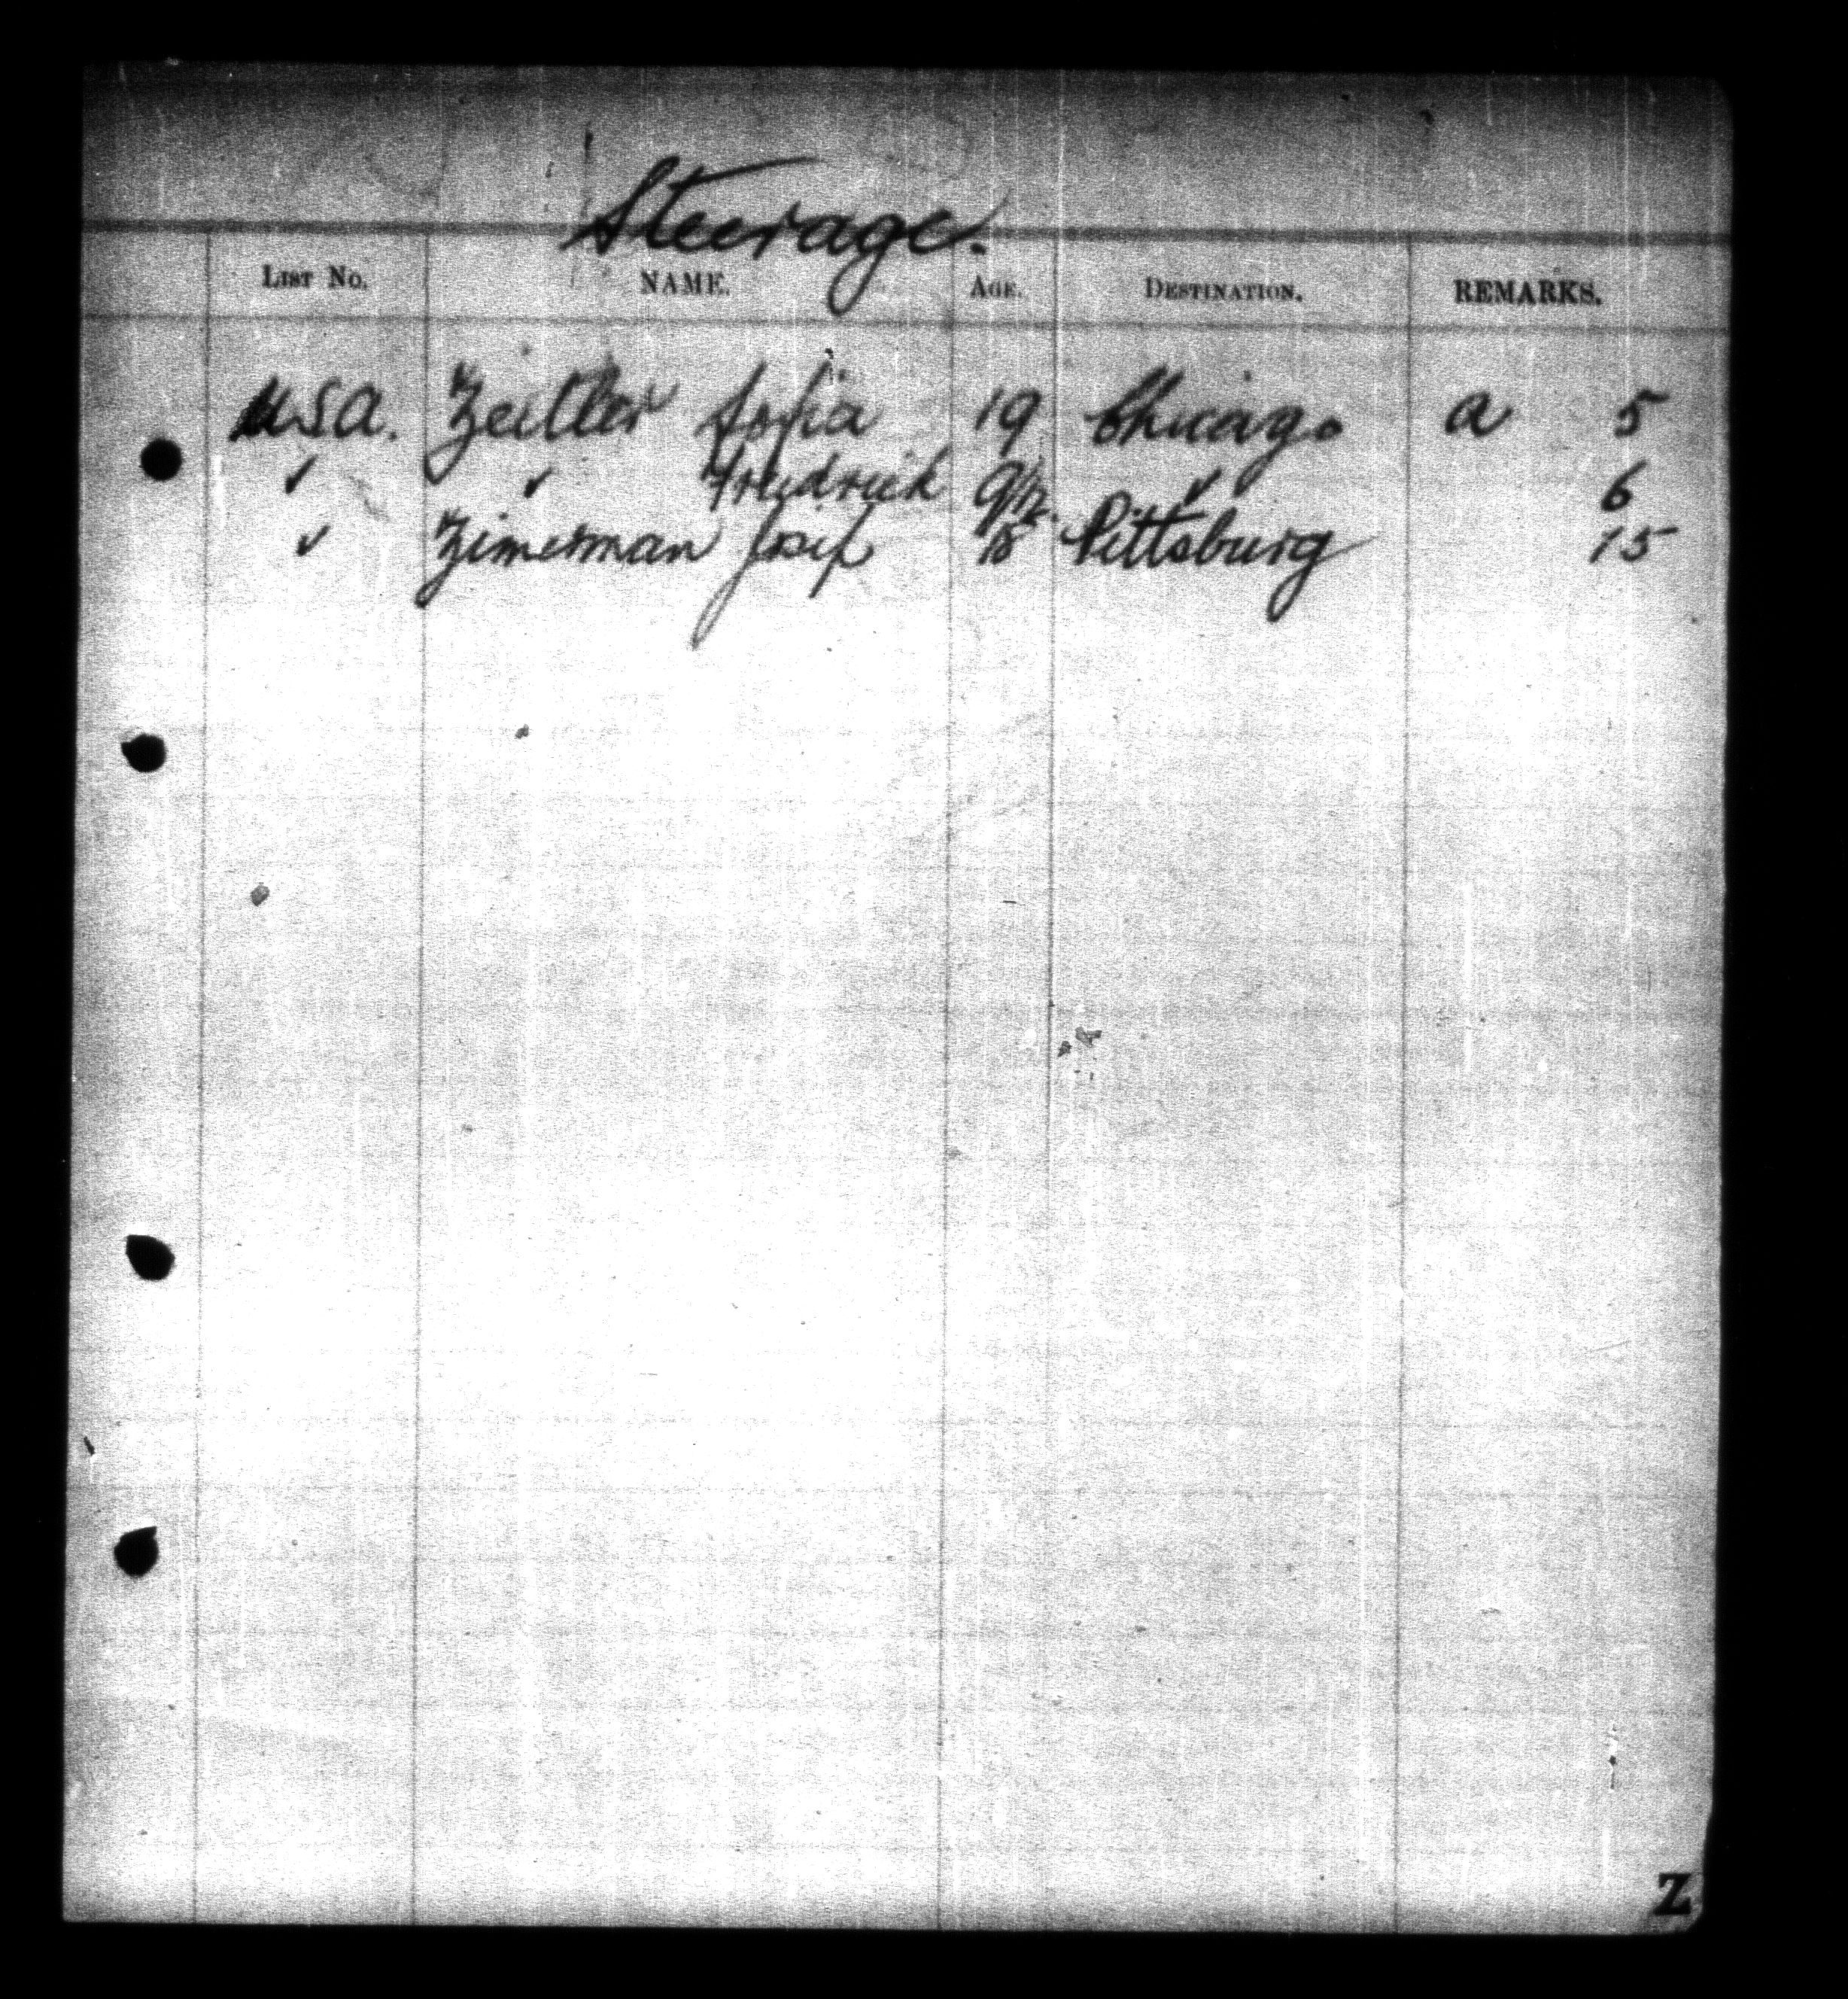 Steerage.
LIST No. NAME. AGE. DESTINATION. REMARKS.
USA. Zeitler Sofia 19 Chicago a 5
✓ ✓ Fredrick ✓ 6
✓ Zimerman Josif 18 Pittsburg 15
Z